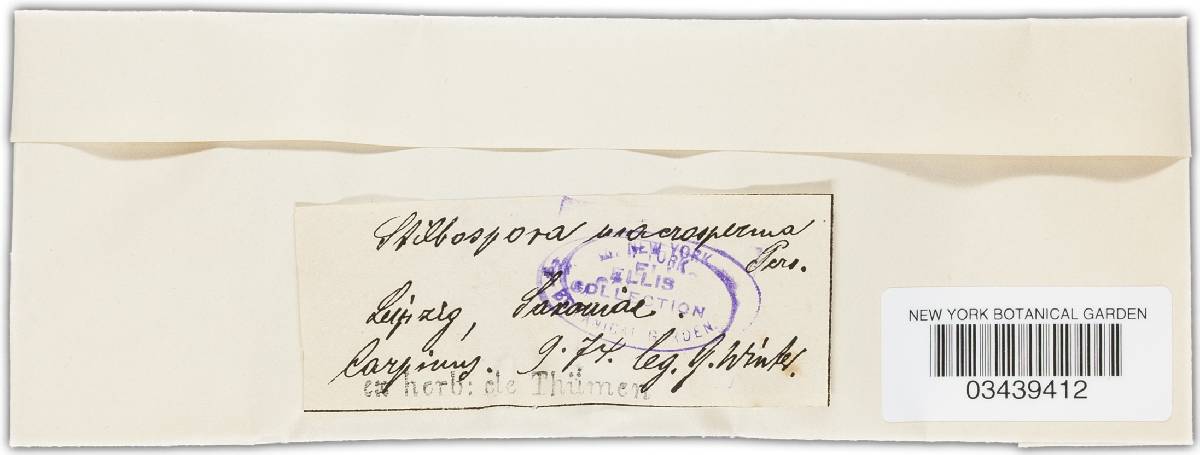 Stilbospora macrosperma
Pers.
NEW YORK
ELLIS
COLLECTION
BOTANICAL GARDEN.
Leipzig, Saxoniae.
Carpinus. 9.74. leg. G. Winter.
ex herb: de Thümen
NEW YORK BOTANICAL GARDEN
03439412